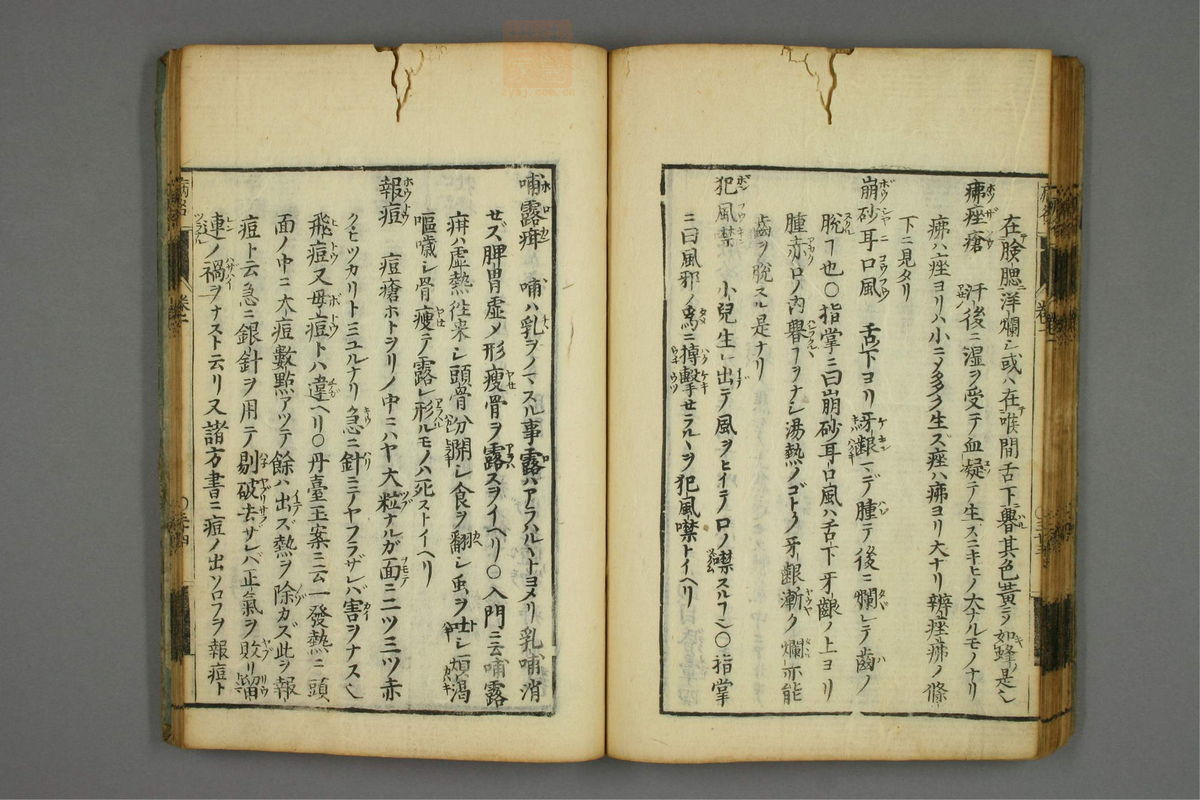 在腮腮洋爛シ或ハ在喉間舌下其色黃ニ如蜂ノ是ヘ
疿痤瘡 汗ノ後ニ濕ヲ受テ血凝テ生スニキヒノ大ナルモノナリ
疿ハ痤ヨリハ小ニノ多多ク生ズ痤ハ疿ヨリ大ナリ辨痤疿ノ條
下ニ見タリ
崩砂耳口風 舌下ヨリ牙齦マデ腫テ後ニ爛レテ齒ノ
脫フ也〇指掌ニ曰崩砂耳口風ハ舌下牙齦ノ上ヨリ
腫赤口ノ內フヲナシ湯熱ノゴトク牙齦漸ク爛亦能
齒ヲ脫スル是ナリ
犯風噤 小兒生レ出テ風ヲヒイテ口ノ噤スルフ也〇指掌
ニ曰風邪ノ爲ニ搏擊セラルヽヲ犯風噤トイヘリ
哺露疳 哺ハ乳ヲノマスル事露ハアラハルヽトヨメリ乳哺消
セズ脾胃虛ノ形瘦骨ヲ露スヲイヘリ〇入門ニ云哺露
疳ハ虛熱往来シ頭骨分開シ食ヲ翻シ虫ヲ吐シ煩渴
嘔噦シ骨瘦テ露レ形ルモノハ死ストイヘリ
報痘 痘瘡ホトヲリノ中ニハヤ大粒ナルガ面ニ二ツ三ツ赤
クモツカリトミユルナリ急ニ針ニテヤフラザレバ害ヲナスヘ
飛痘又母痘トハ違ヘリ〇丹臺玉案ニ云一發熱ニ頭
面ノ中ニ大痘數點アツテ餘ハ出ズ熱ヲ除カズ此ヲ報
痘ト云急ニ銀針ヲ用テ剔破去ザレバ正氣ヲ敗リ留
連ノ禍ヲナスト云リ又諸方書ニ痘ノ出ソロフヲ報痘ト